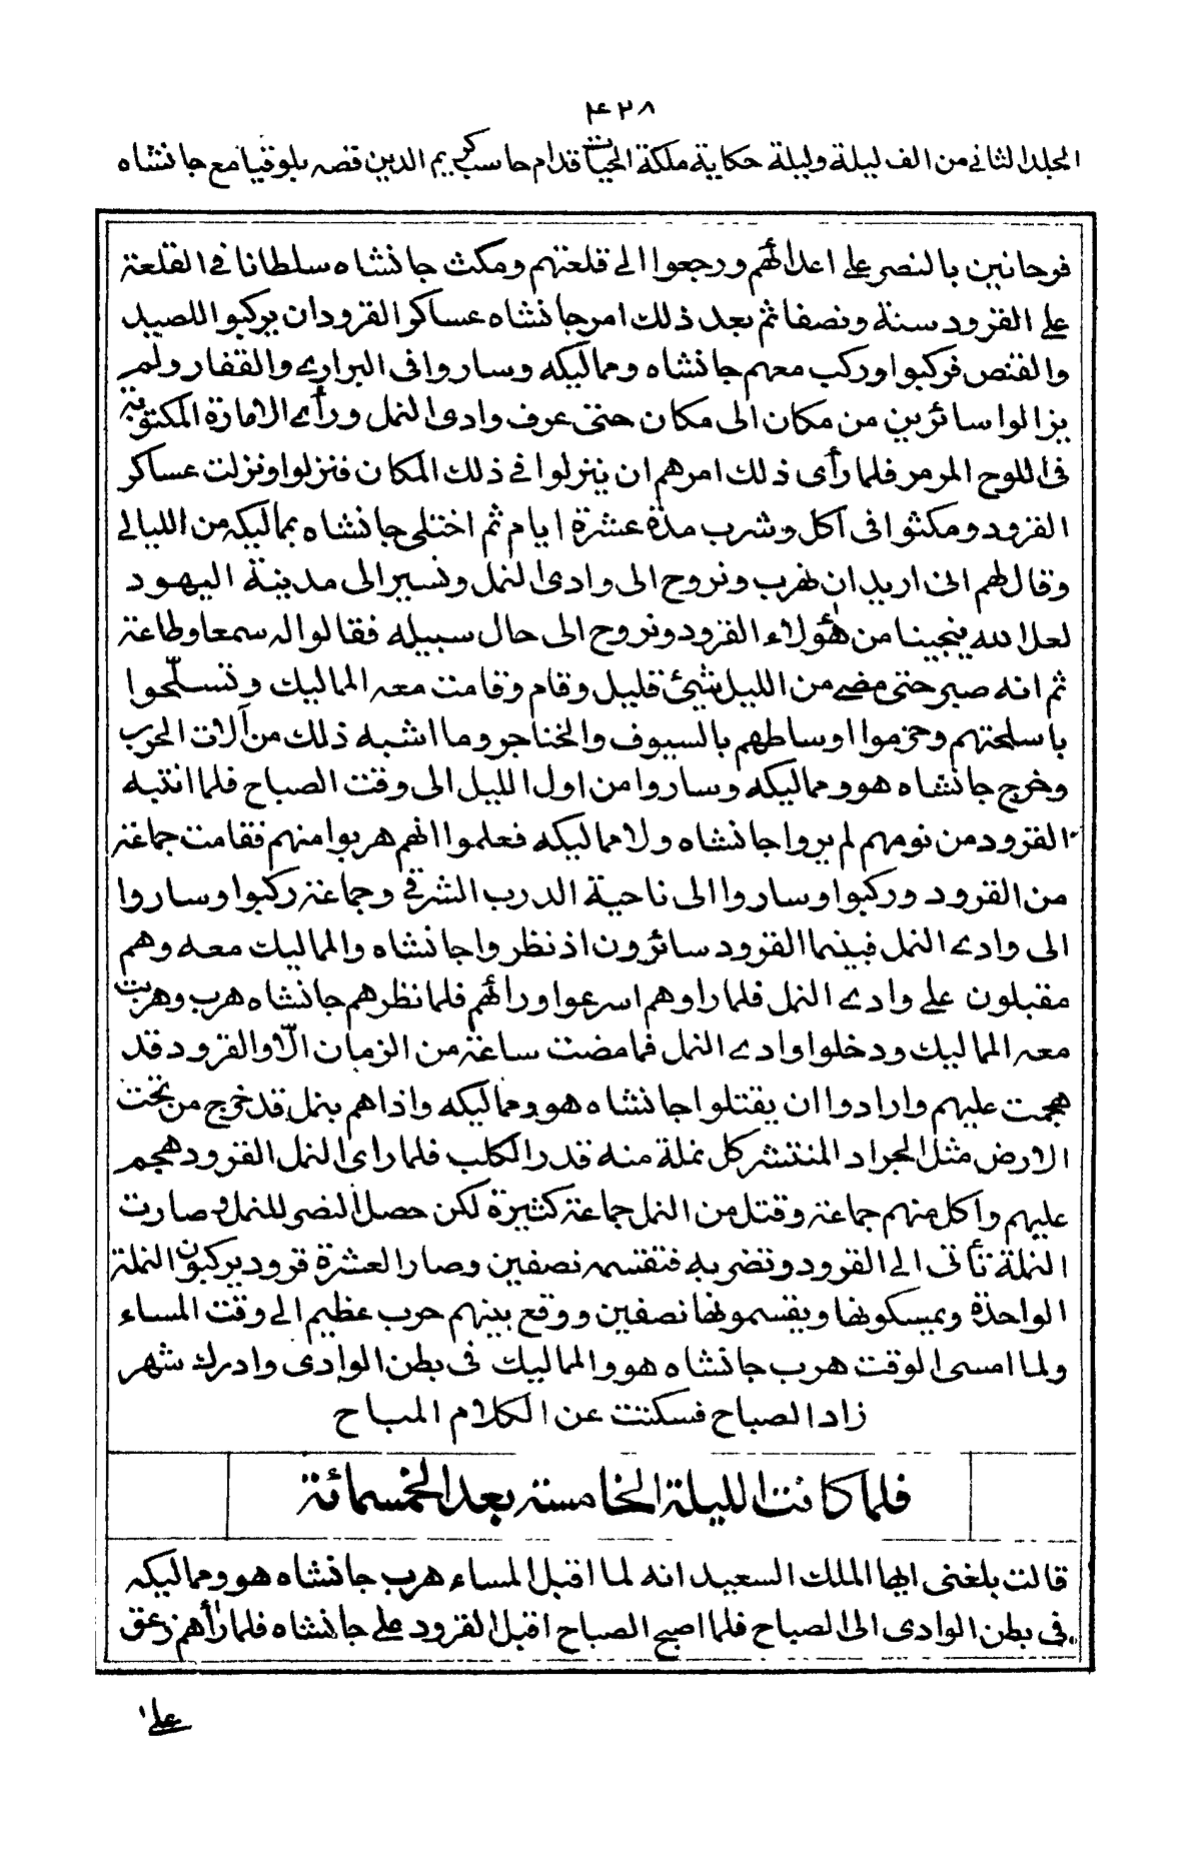 ۴۲۸
المجلد الثانى من الف ليلة وليلة حكاية ملكة الحيات قدام حاسب كريم الدين قصه بلوقيا مع جانشاه
فرحانين بالنصر على اعدائهم ورجعوا الى قلعتهم ومكث جانشاه سلطانا فى القلعة
على القرود سنة ونصفا ثم بعد ذلك امر جانشاه عساكر القرود ان يركبوا للصيد
والقنص فركبوا وركب معهم جانشاه ومماليكه وساروا فى البرارى والقفار ولم
يزالوا سائرين من مكان الى مكان حتى عرف وادى النمل ورأى الامارة المكتوبة
فى اللوح المرمر فلما رأى ذلك امرهم ان ينزلوا فى ذلك المكان فنزلوا ونزلت عساكر
القرود ومكثوا فى اكل وشرب مدة عشرة ايام ثم اختلى جانشاه بمماليكه من الليالى
وقال لهم انى اريد ان نهرب ونروح الى وادى النمل ونسير الى مدينة اليهود
لعل الله ينجينا من هٰؤلاء القرود ونروح الى حال سبيله فقالوا له سمعا وطاعة
ثم انه صبر حتى مضى من الليل شيئ قليل وقام وقامت معه المماليك وتسلّحوا
باسلحتهم وحزموا اوساطهم بالسيوف والخناجر وما اشبه ذلك من آلات الحرب
وخرج جانشاه هو ومماليكه وساروا من اول الليل الى وقت الصباح فلما انتبه
القرود من نومهم لم يروا جانشاه ولا مماليكه فعلموا انهم هربوا منهم فقامت جماعة
من القرود وركبوا وساروا الى ناحية الدرب الشرقى وجماعة ركبوا وساروا
الى وادى النمل فبينما القرود سائرون اذ نظروا جانشاه والمماليك معه وهم
مقبلون على وادى النمل فلما راوهم اسرعوا ورائهم فلما نظرهم جانشاه هرب وهربت
معه المماليك ودخلوا وادى النمل فما مضت ساعة من الزمان الّا والقرود قد
هجمت عليهم وارادوا ان يقتلوا جانشاه هو ومماليكه واذا هم بنمل قد خرج من تحت
الارض مثل الجراد المنتشر كل نملة منه قدر الكلب فلما راى النمل القرود هجم
عليهم واكل منهم جماعة وقتل من النمل جماعة كثيرة لكن حصل النصر للنمل وصارت
النملة تأتى الى القرود وتضربه فتقسمه نصفين وصار العشرة قرود يركبون النملة
الواحدة ويمسكونها ويقسمونها نصفين ووقع بينهم حرب عظيم الى وقت المساء
ولما امسى الوقت هرب جانشاه هو والمماليك فى بطن الوادى وادرك شهر
زاد الصباح فسكتت عن الكلام المباح
فلما كانت الليلة الخامسة بعد الخمسمائة
قالت بلغنى ايها الملك السعيد انه لما اقبل المساء هرب جانشاه هو ومماليكه
فى بطن الوادى الى الصباح فلما اصبح الصباح اقبل القرود على جانشاه فلما رأهم زعق
على